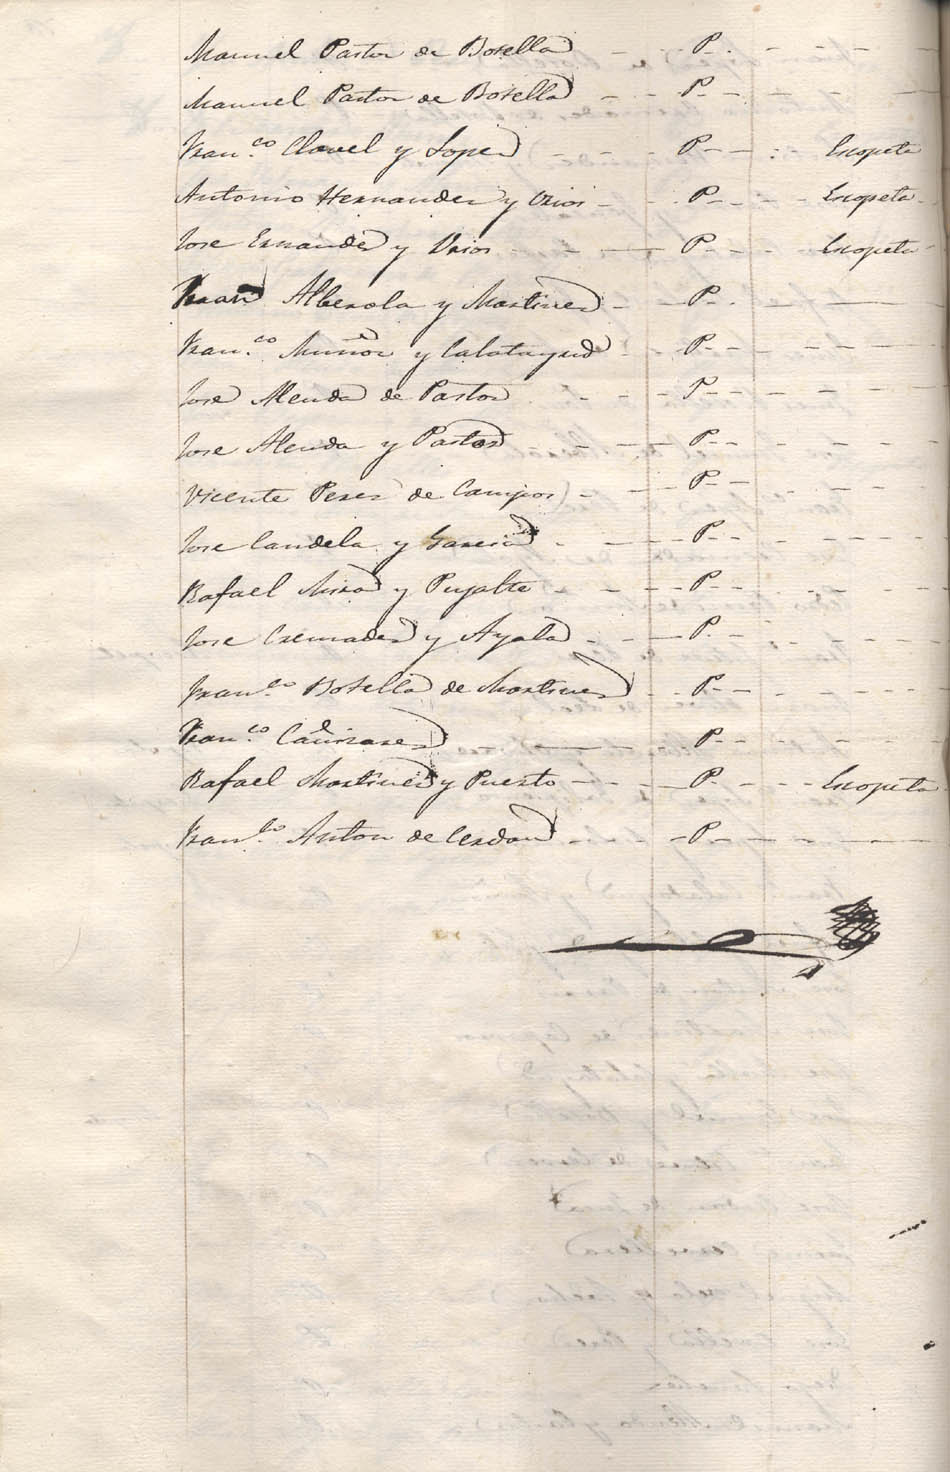 Manuel Pastor de Botella - - P. - - - -
Manuel Pastor de Botella - - P - - - - -
Fran.co Clavel y Lopez - - - P - - : Escopeta
Antonio Hernandez y Urios - - - P - - - - Escopeta
Jose Ernandez y Urios - - P - - Escopeta
Fran Alberola y Martinez - - P - . - -
Fran.co Muñoz y Calatayud - P - - - - -
Jose Alenda de Pastor - - - P - - - - -
Jose Alenda y Pastor - - - P - - - - -
Vicente Perez de Campos - - - P - - - -
Jose Candela y Garcia - - - P - - - - -
Rafael Mira y Pujalte - - - P - - - - -
Jose Cremades y Ayala - - - P - - - - -
Fran.co Botella de Martinez - - P - - - - -
Fran.co Cañizares - - P - - - - -
Rafael Martinez y Puerto - - - P - - - - Escopeta
Fran.co Anton de Cerdan - - - P - - - - -